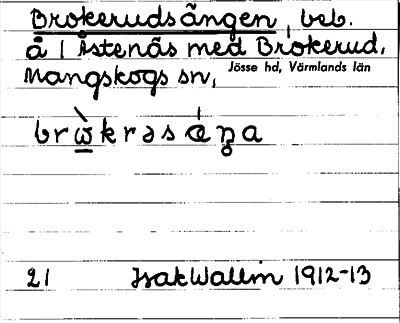 Brokerudsängen, beb.
å 1 Åstenäs med Brokerud,
Mangskogs sn, Jösse hd, Värmlands län
brὼkrəsáṇa
21 Isak Wallin 1912-13